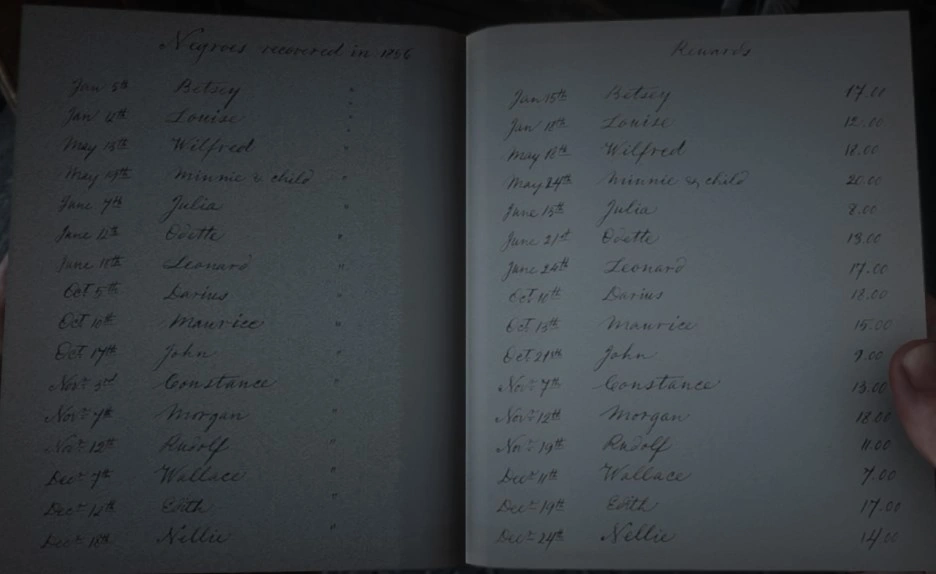 Negroes recovered in 1856
Jan 5th Betsey "
Jan Louise "
May 13th Wilfred "
May Minnie & child "
June 7th Julia "
June 12th Odette "
June Leonard "
Oct 5th Darius "
Oct 10th Maurice "
Oct 17th John "
Nov. 3rd Constance "
Nov. 7th Morgan "
Nov. 12th Rudolf "
Dec. 7th Wallace "
Dec. 12th Edith "
Dec. 18th Nellie "
Rewards
Jan 15th Betsey 17.00
Jan 18th Louise 12.00
May 16th Wilfred 18.00
May 24th Minnie & child 20.00
June 15th Julia 8.00
June 21st Odette 13.00
June 24th Leonard 17.00
Oct Darius 18.00
Oct 13th Maurice 15.00
Oct 21th John 9.00
Nov. 7th Constance 13.00
Nov. 12th Morgan 18.00
Nov. 19th Rudolf 11.00
Dec. 11th Wallace 7.00
Dec. 19th Edith 17.00
Dec. 24th Nellie 14.00